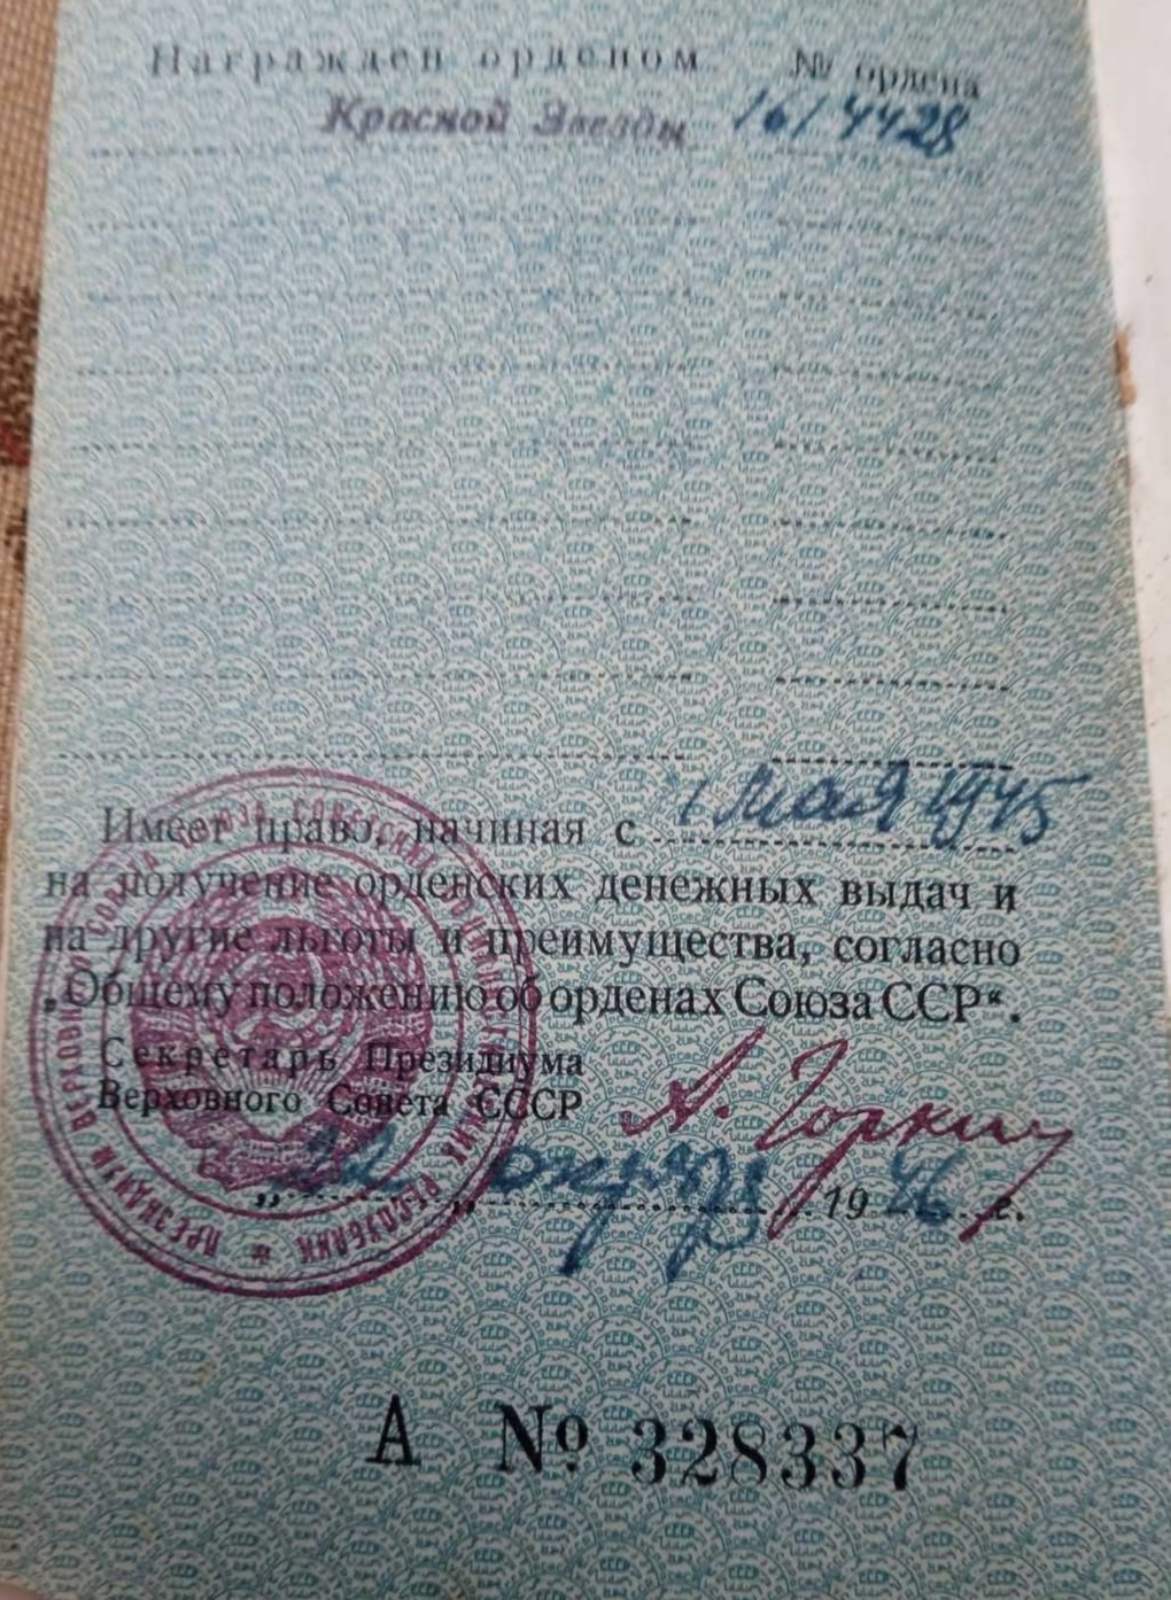 Награжден орденом № ордена
Красной Звезды 1614428
Имеет право, начиная с 1 мая 1945
на получение орденских денежных выдач и
на другие льготы и преимущества, согласно
„Общему положению об орденах Союза ССР“.
Секретарь Президиума
Верховного Совета СССР А. Горкин
„22 „ 1946 г.
ПРЕЗИДИУМ ВЕРХОВНОГО СОВЕТА СОЮЗА СОВЕТСКИХ СОЦИАЛИСТИЧЕСКИХ РЕСПУБЛИК *
А № 328337